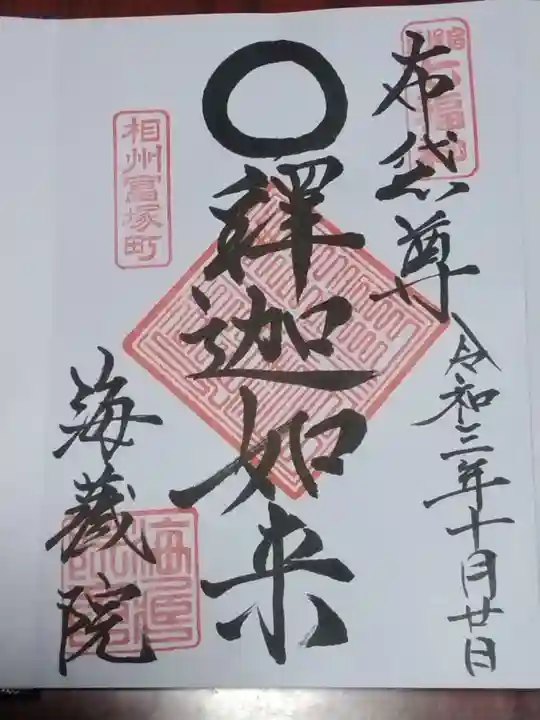 布袋尊
令和三年十月廿日
釋迦如来
相州富塚町
海蔵院